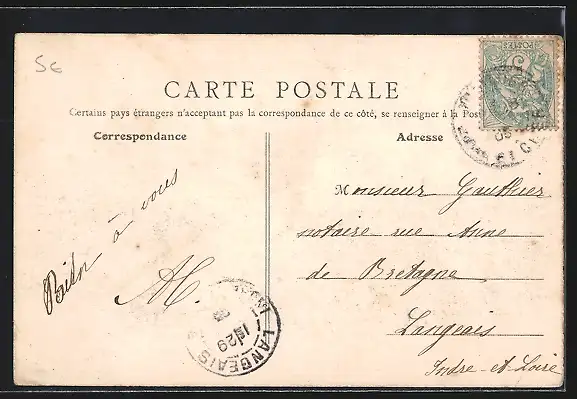 5€
CARTE POSTALE
Certains pays étrangers n'acceptant pas la correspondance de ce côté, se renseigner à la Pos
Correspondance
Adresse
à vous
M.
Monsieur Gauthier
notaire rue Anne
de Bretagne
Langeais
Indre-et-Loire
POSTES
5
LANGEAIS
29